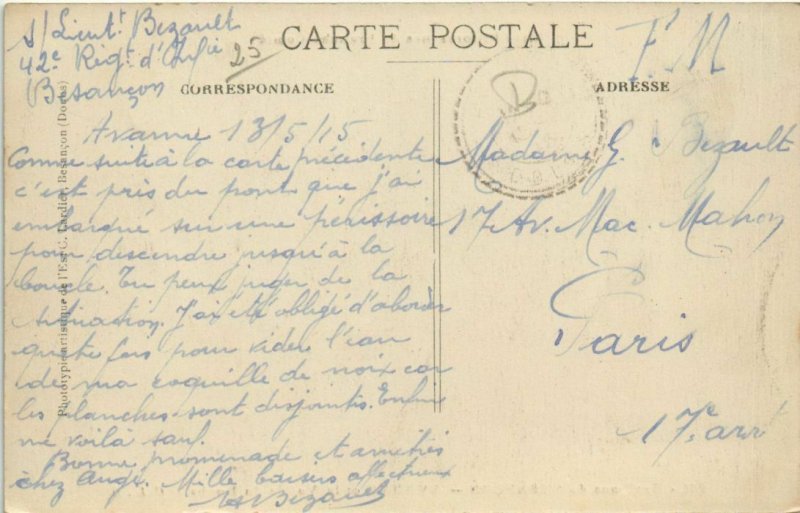 S/Lieut. Bizault
42e Régt d'Infie
Besançon
25
CARTE POSTALE
F M
CORRESPONDANCE
ADRESSE
Avanne 13/5/15
Comme suite à la carte précédente
c'est près du pont que j'ai
embarqué sur une périssoire
pour descendre jusqu'à la
boucle. Tu peux juger de la
situation. J'ai été obligé d'aborder
quate fois pour vider l'eau
de ma coquille de noix car
les planches sont disjointes. Enfin
me voilà sauf.
Bonne promenade et amitiés
chez Ange. Mille baisers affectueux
Bizault
Madame G. Bizault
17 Av. Mac. Mahon
Paris
17e arrt
Phototypie artistique de l'Est C. Lardier, Besançon (Doubs)